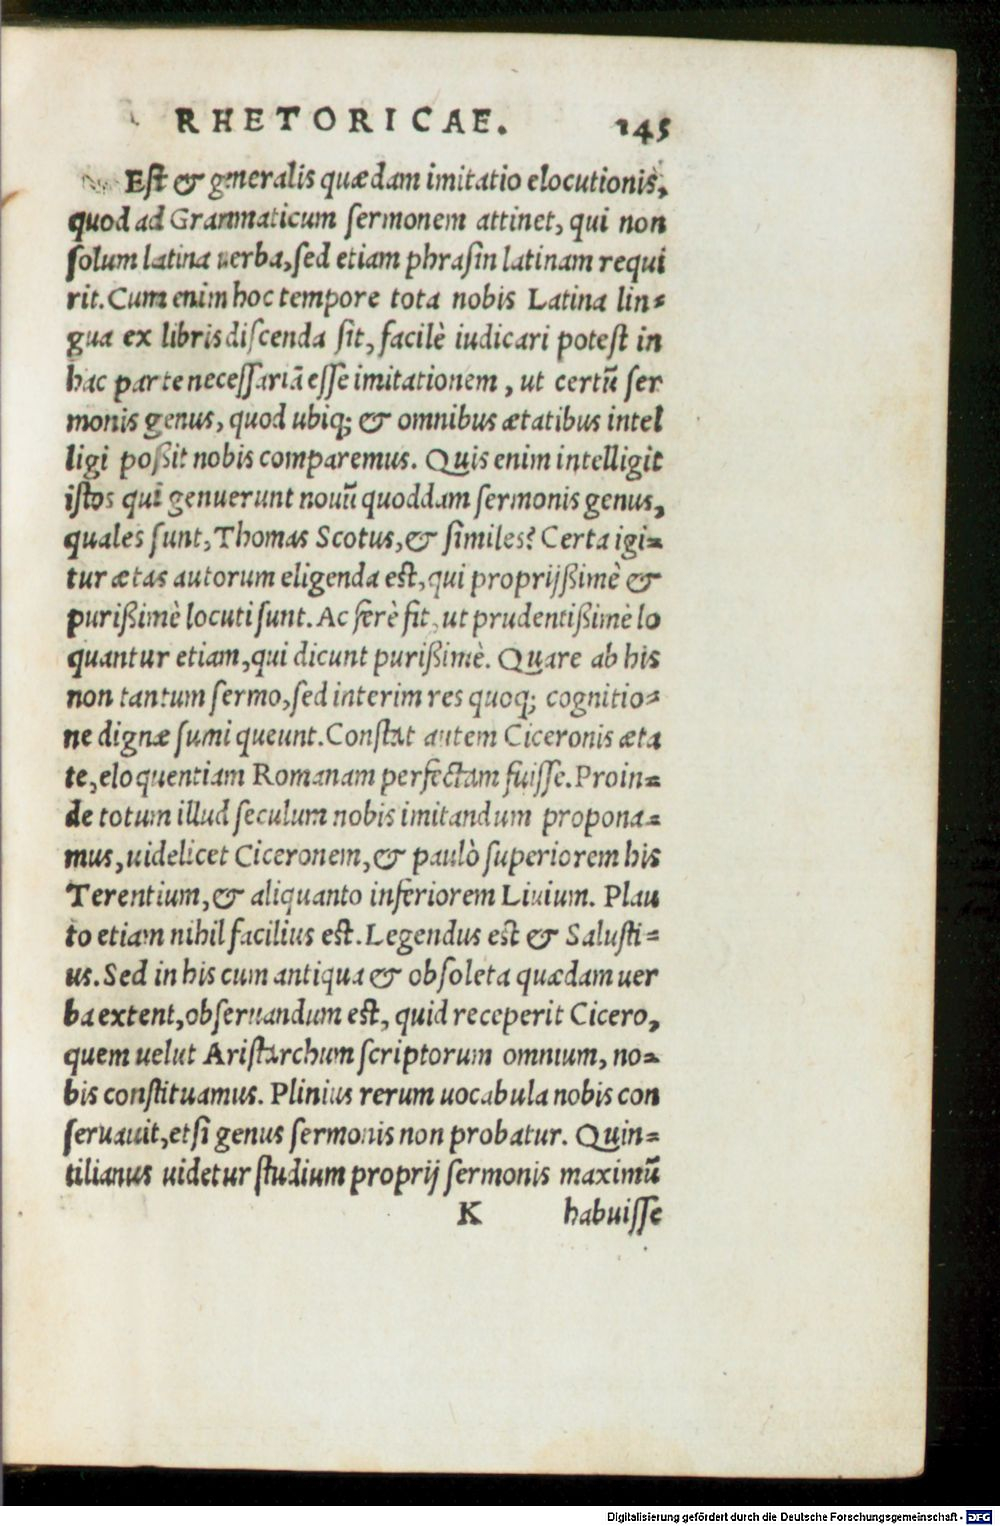 RHETORICAE. 145
Est & generalis quædam imitatio elocutionis,
quod ad Grammaticum sermonem attinet, qui non
solum latina uerba, sed etiam phrasin latinam requi
rit. Cum enim hoc tempore tota nobis Latina lin-
gua ex libris discenda sit, facilè iudicari potest in
hac parte necessariā esse imitationem, ut certū ser
monis genus, quod ubiq; & omnibus ætatibus intel
ligi poßit nobis comparemus. Quis enim intelligit
istos qui genuerunt nouū quoddam sermonis genus,
quales sunt, Thomas Scotus, & similes? Certa igi-
tur ætas autorum eligenda est, qui proprijßimè &
purißimè locuti sunt. Ac ferè fit, ut prudentißimè lo
quantur etiam, qui dicunt purißimè. Quare ab his
non tantum sermo, sed interim res quoq; cognitio-
ne dignæ sumi queunt. Constat autem Ciceronis æta
te, eloquentiam Romanam perfectam fuisse. Proin-
de totum illud seculum nobis imitandum propona-
mus, uidelicet Ciceronem, & paulò superiorem his
Terentium, & aliquanto inferiorem Liuium. Plau
to etiam nihil facilius est. Legendus est & Salusti-
us. Sed in his cum antiqua & obsoleta quædam uer
ba extent, obseruandum est, quid receperit Cicero,
quem uelut Aristarchum scriptorum omnium, no-
bis constituamus. Plinius rerum uocabula nobis con
seruauit, etsi genus sermonis non probatur. Quin-
tilianus uidetur studium proprij sermonis maximū
K habuisse
Digitalisierung gefördert durch die Deutsche Forschungsgemeinschaft - DFG